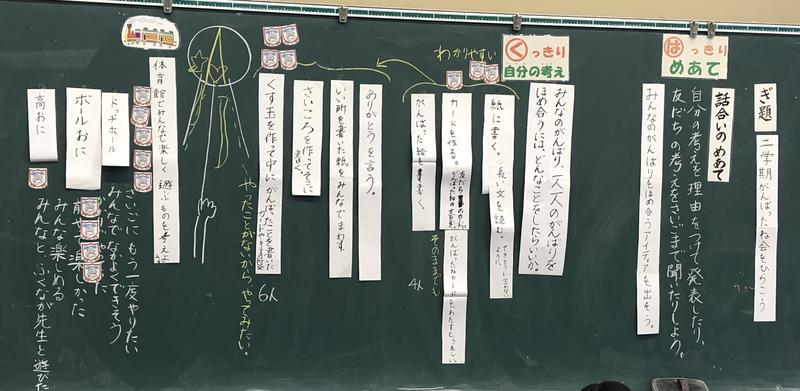 ぎ題
二学期がんばったね会をひらこう
話合いのめあて
自分の考えを理由をつけて発表したり、
友だちの考えをさいごまで聞いたりしよう。
はっきり
めあて
みんなのがんばりをほめ合うアイディアを出そう。
くっきり
自分の考え
みんなのがんばり、一人一人のがんばりを
ほめ合うには、どんなことをしたらいいか。
わかりやすい
紙に書く。
長い文を読む。
カードを作る。
がんばったねカードをわたすとうれしい。
そのままでも
がんばった絵を書く。
4人
ありがとうを言う。
いい所を書いた紙をみんなでまわす。
さいころを作ってそこに
書く。
くす玉を作って中にがんばったことを書いた
6人
やったことがないからやってみたい。
体育館でみんなで楽しく遊ぶものを考えよう
ドッヂボール
さいごにもう一度やりたい
みんなでなかよくできそう
ボールおに
みんな楽しめる
高おに
みんなとふくなが先生と遊びた